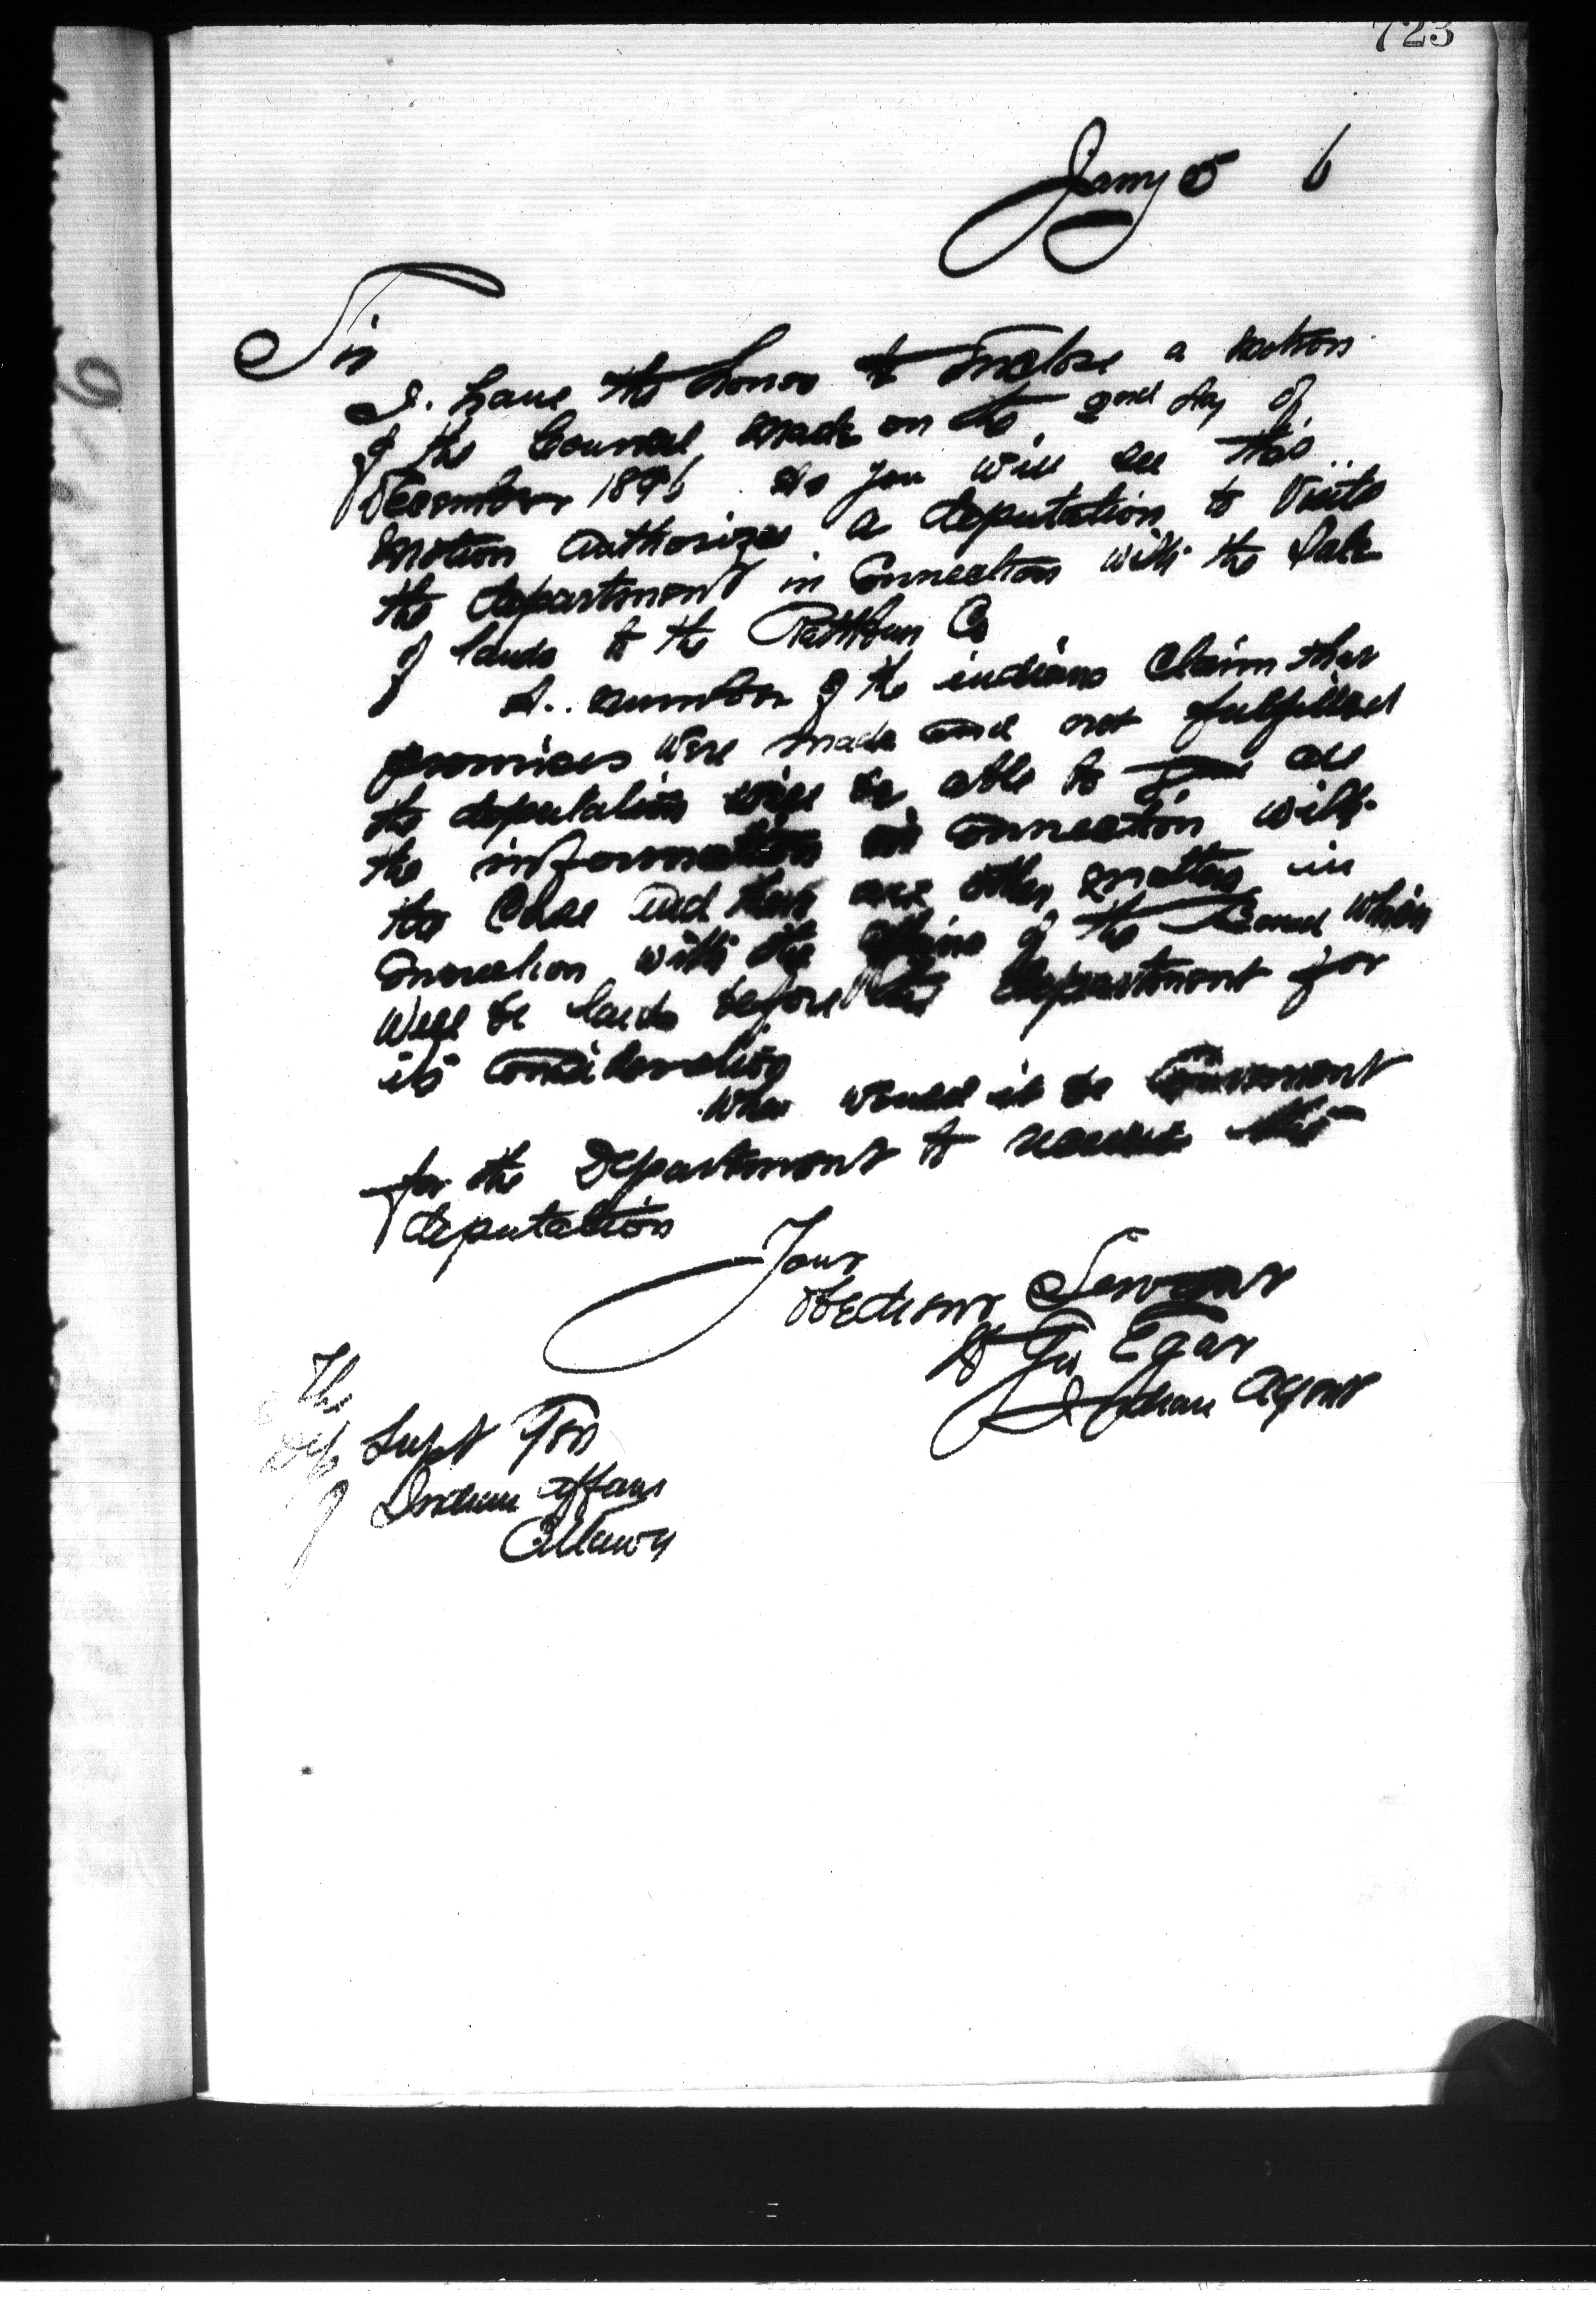 723
Jany 5 6
Sir
I. have the honor to Enclose a motion
of the Council made on the 2nd day of
December 1896 As you will see this
motion authorizes a deputation to Visite
the department in Connection with the Sale
of lands to the Rathbun Co
A.. number of the indians Claim that
promises were made and not fulfilled
the deputation will be able to give all
the information in connection with
the Case and there are other matters in
Connection with the affairs of the Band which
will be laid before the Department for
its consideration
When would it be Convenient
for the Department to receive this
deputation
Your
obedient Servant
Geo Egar
Indian Agent
The
Dep Supt Gen
of Indian Affairs
Ottawa